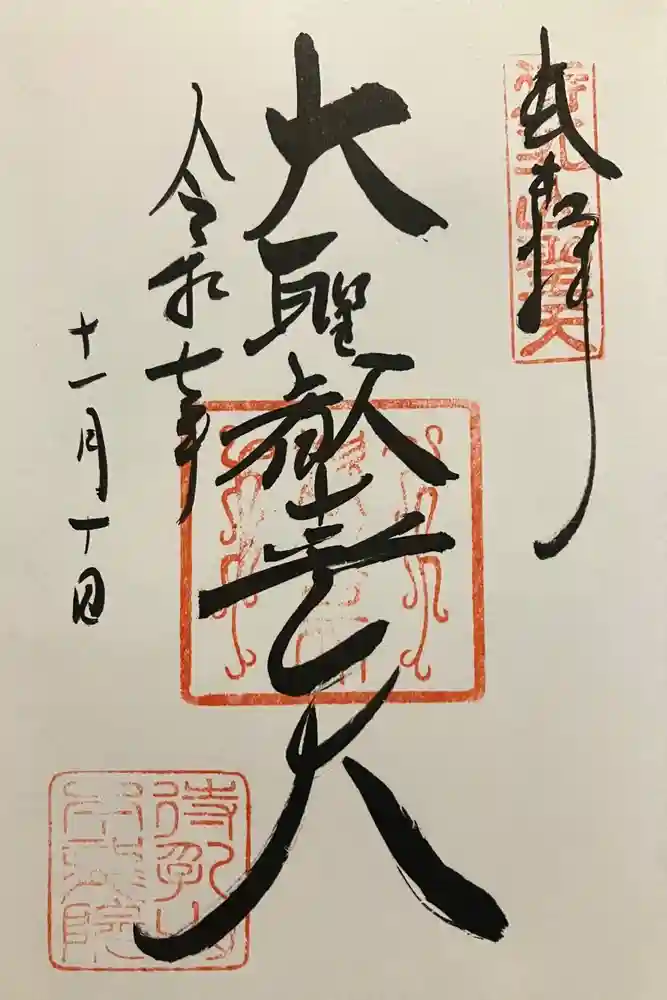 奉拝
待乳山聖天
大聖歓喜天
令和七年
十一月十日
待乳山
本龍院